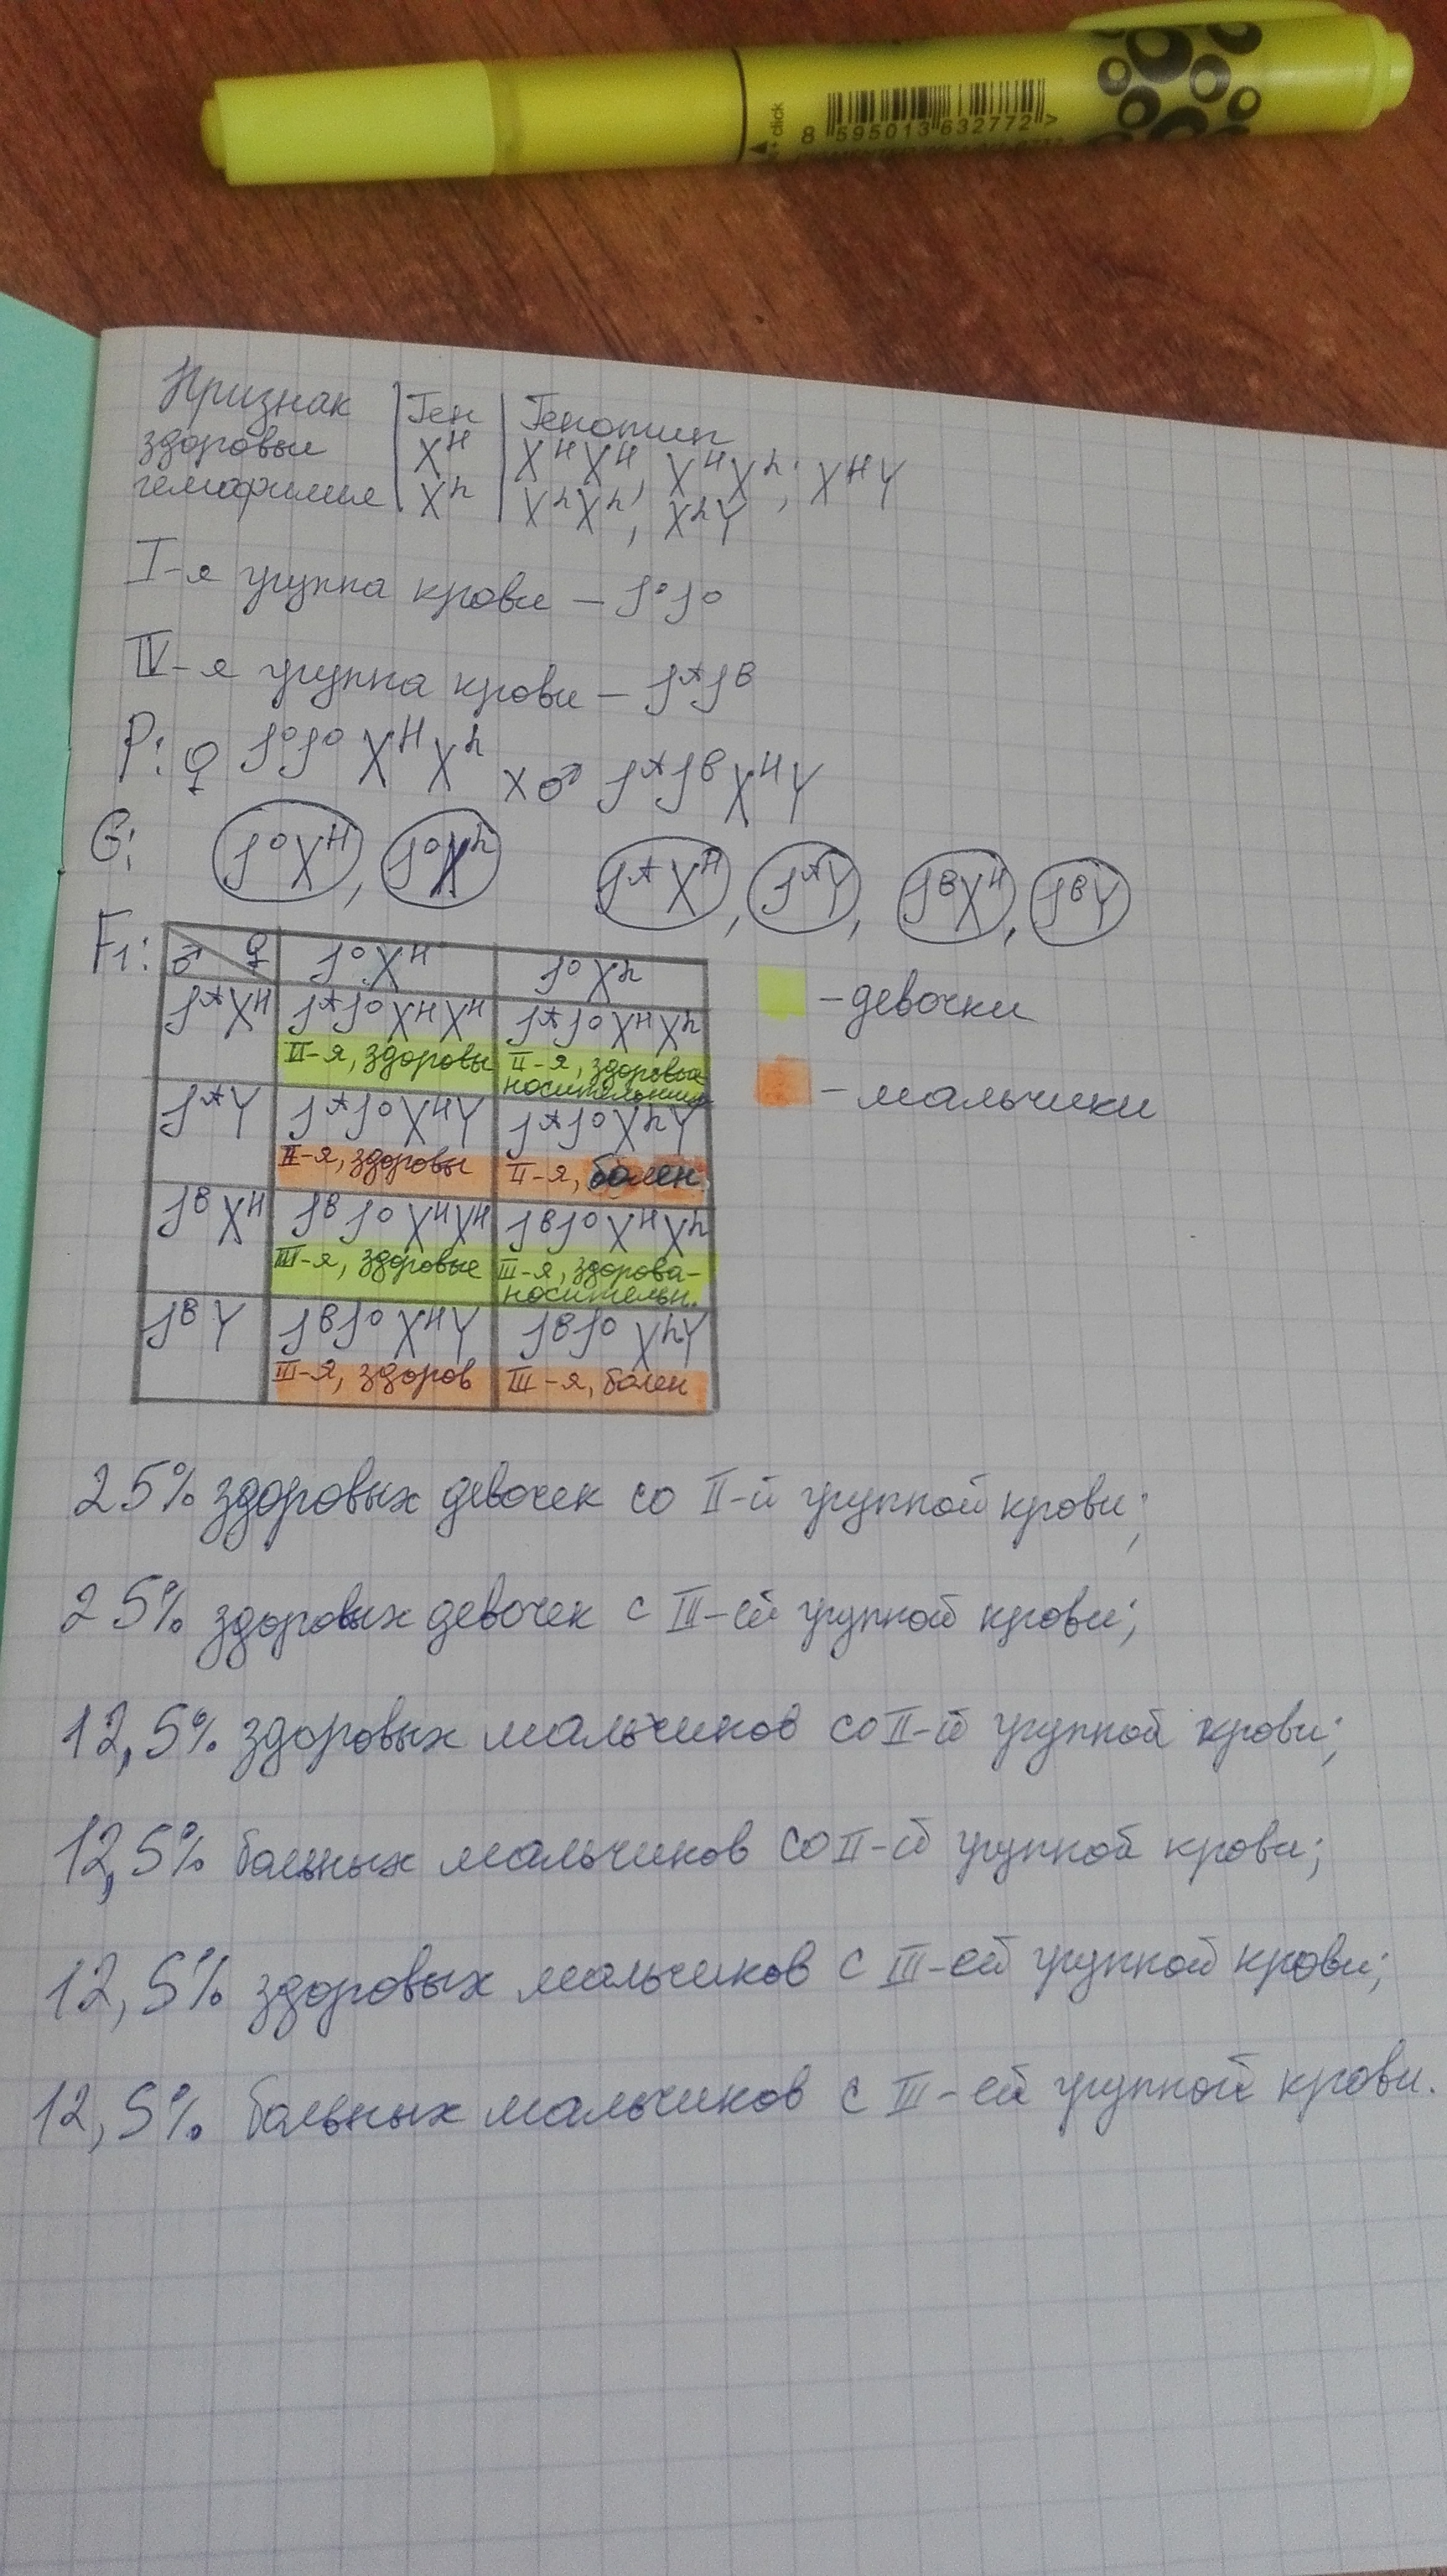 click
8 595013 632772 >
Признак | Ген | Генотип
здоровые | Xᴴ | XᴴXᴴ, XᴴXʰ, XᴴY
гемофилия | Xʰ | XʰXʰ, XʰY
I-я группа крови – J⁰J⁰
IV-я группа крови – JᴬJᴮ
P: ♀ J⁰J⁰ XᴴXʰ x ♂ JᴬJᴮXᴴY
G: J⁰Xᴴ, J⁰Xʰ JᴬXᴴ, JᴬY, JᴮXᴴ, JᴮY
F₁: ♂ ♀ J⁰Xᴴ J⁰Xʰ
JᴬXᴴ JᴬJ⁰XᴴXᴴ JᴬJ⁰XᴴXʰ
II-я, здоровы II-я, здоровые
носительницы
JᴬY JᴬJ⁰XᴴY JᴬJ⁰XʰY
II-я, здоровы II-я, болен
JᴮXᴴ JᴮJ⁰XᴴXᴴ JᴮJ⁰XᴴXʰ
III-я, здоровые III-я, здорова-
носительн.
JᴮY JᴮJ⁰XᴴY JᴮJ⁰ XʰY
III-я, здоров III-я, болен
– девочки
– мальчики
25% здоровых девочек со II-й группой крови;
25% здоровых девочек с III-ей группой крови;
12,5% здоровых мальчиков со II-й группой крови;
12,5% больных мальчиков со II-й группой крови;
12,5% здоровых мальчиков с III-ей группой крови;
12,5% больных мальчиков с III-ей группой крови.